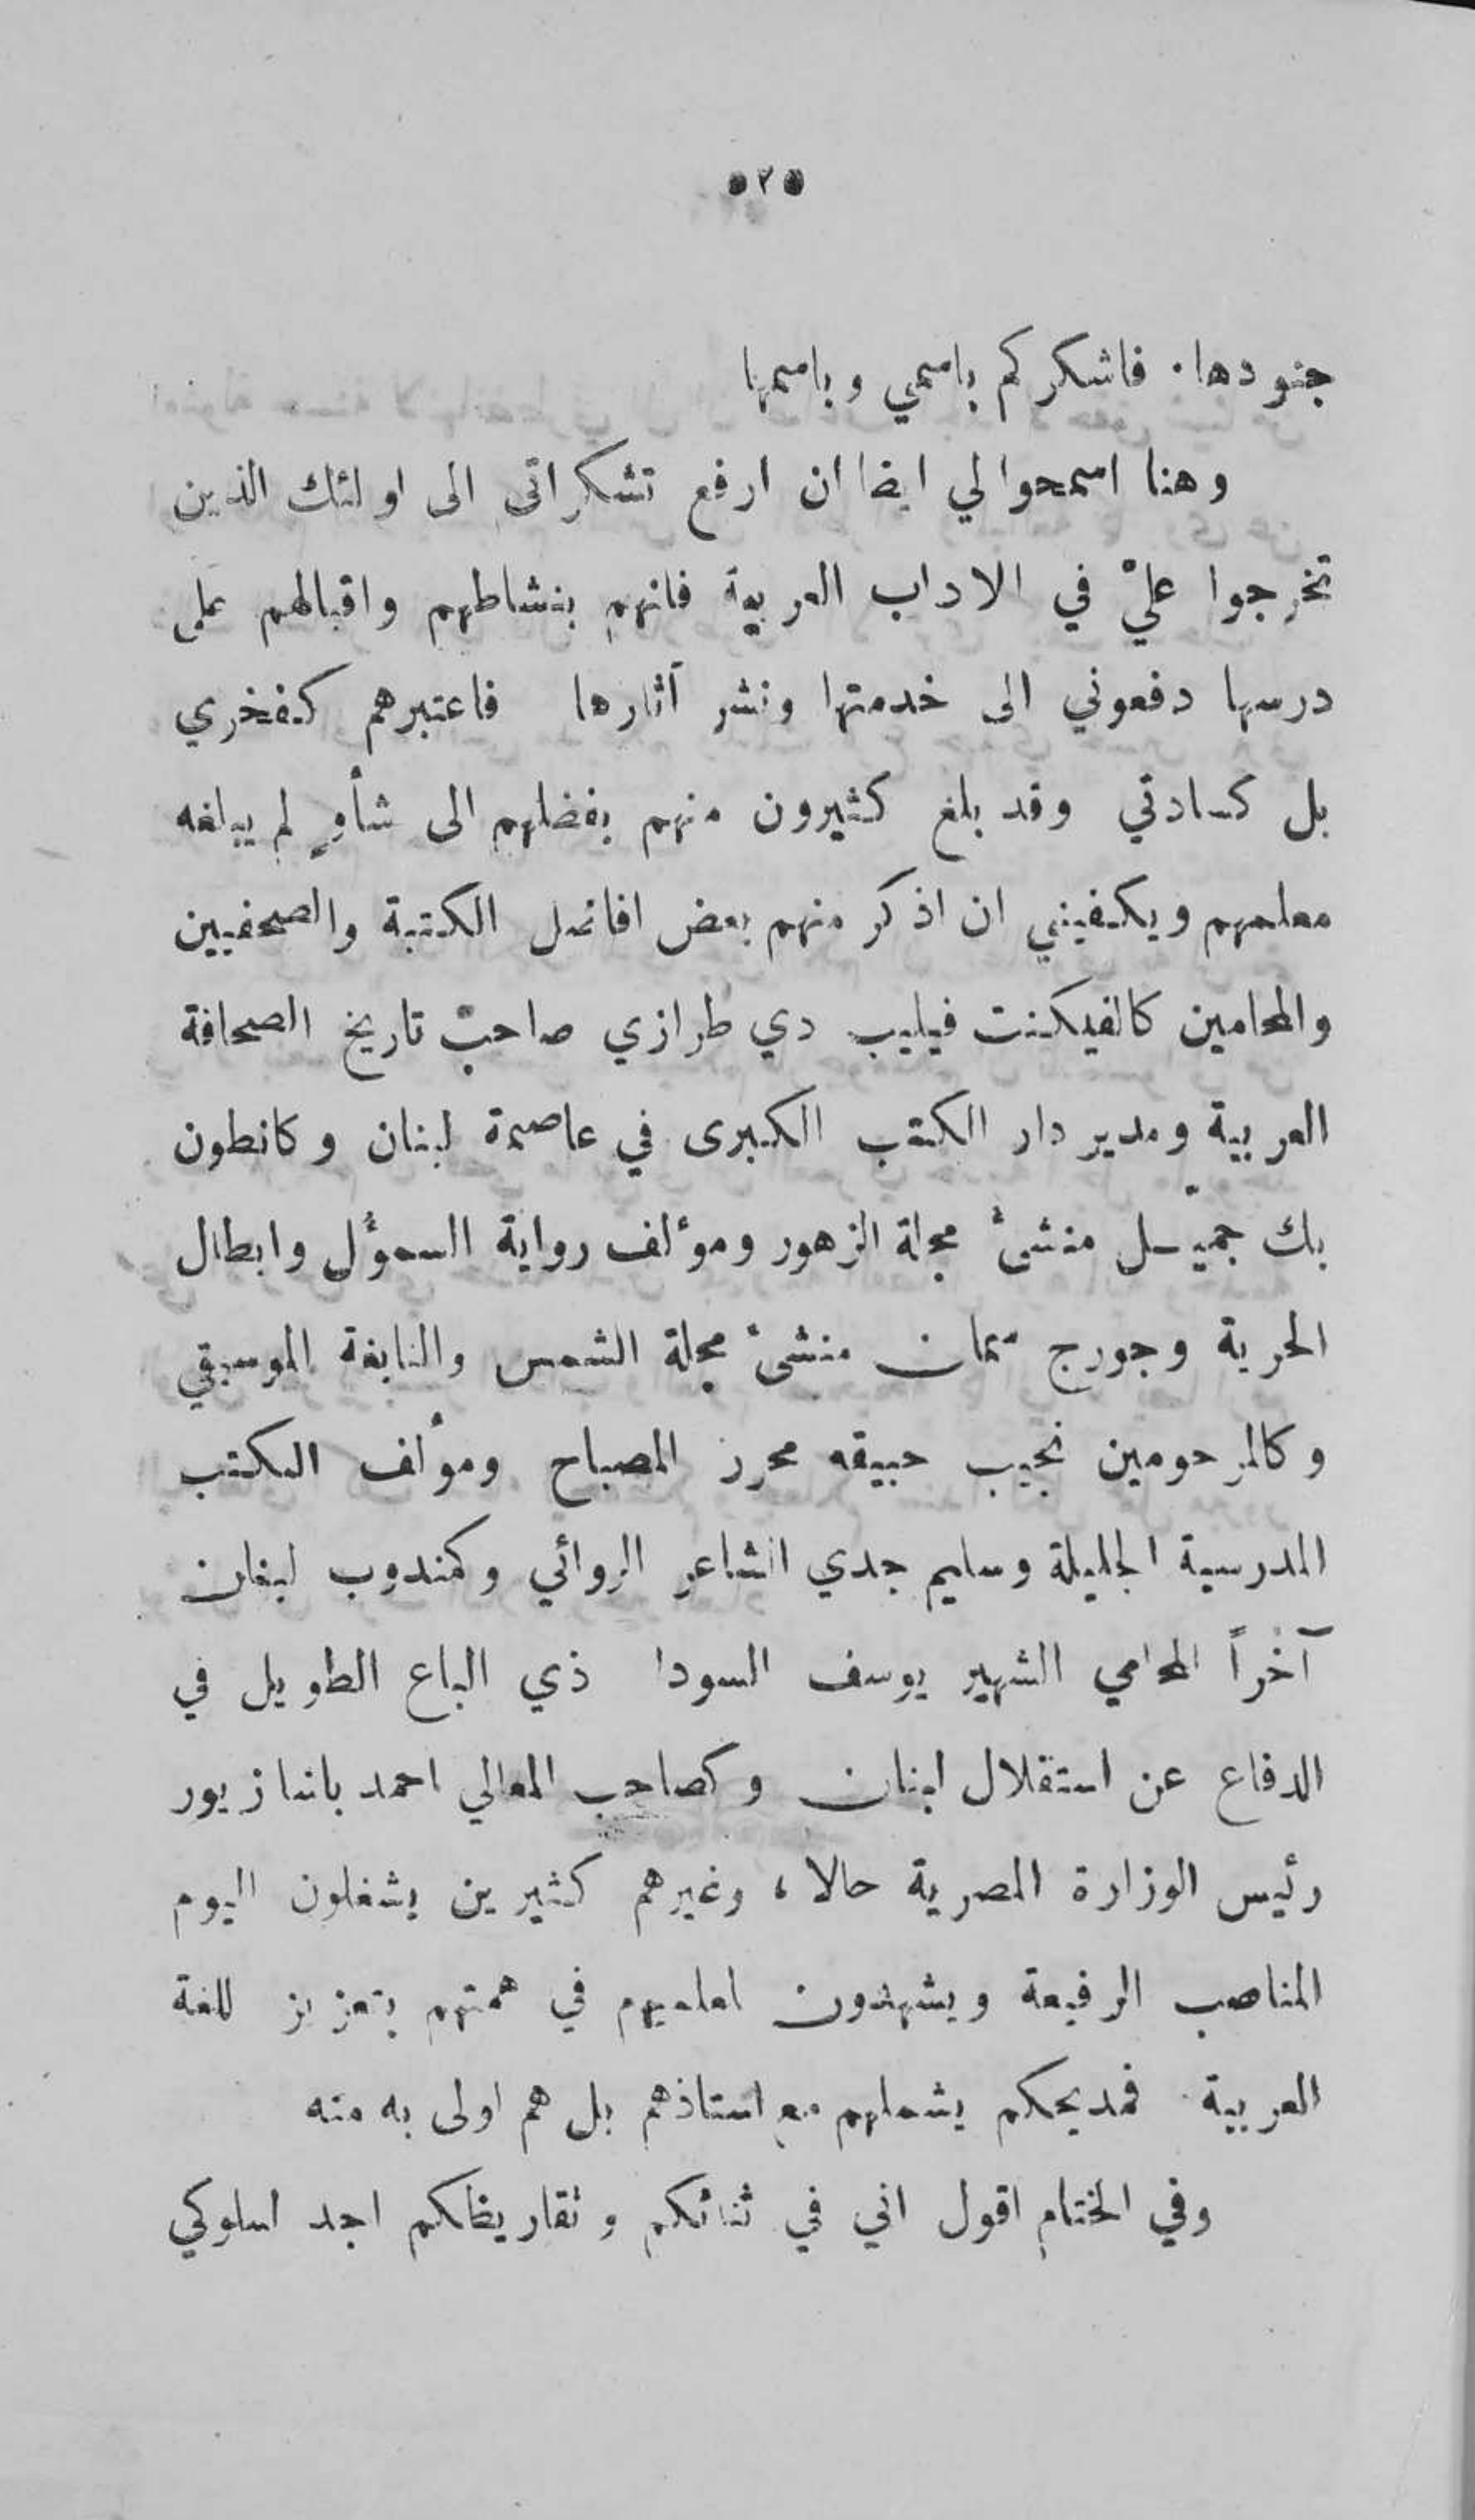 ٥٢٥
جنودها. فاشكركم باسمي وباسمها
وهنا اسمحوا لي ايضا ان ارفع تشكراتي الى اولئك الذين
تخرجوا عليّ في الاداب العربية فانهم بنشاطهم واقبالهم على
درسها دفعوني الى خدمتها ونشر آثارها فاعتبرهم كفخري
بل كسادتي وقد بلغ كثيرون منهم بفضلهم الى شأوٍ لم يبلغه
معلمهم ويكفيني ان اذكر منهم بعض افاضل الكتبة والصحفيين
والمحامين كالفيكنت فيليب دي طرازي صاحب تاريخ الصحافة
العربية ومدير دار الكتب الكبرى في عاصمة لبنان وكانطون
بك جميّل منشئ مجلة الزهور ومؤلف رواية السموأل وابطال
الحرية وجورج سمان منشئ مجلة الشمس والنابغة الموسيقي
وكالمرحومين نجيب حبيقه محرر المصباح ومؤلف الكتب
المدرسية الجليلة وسليم جدي الشاعر الروائي وكمندوب لبنان
آخراً المحامي الشهير يوسف السودا ذي الباع الطويل في
الدفاع عن استقلال لبنان وكصاحب المعالي احمد باشا زيور
رئيس الوزارة المصرية حالا، وغيرهم كثيرين يشغلون اليوم
المناصب الرفيعة ويشهدون لمعلميهم في همتهم بتعزيز للغة
العربية. فمديحكم يشملهم مع استاذهم بل هم اولى به منه
وفي الختام اقول اني في ثنائكم وتقاريظكم اجد لسلوكي